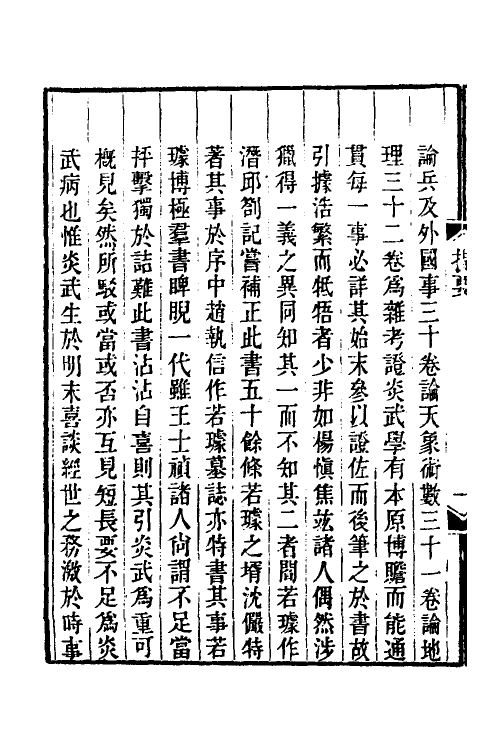 論兵及外國事三十卷論天象術數三十一卷論地
理三十二卷為雜考證炎武學有本原博贍而能通
貫每一事必詳其始末參以證佐而後筆之於書故
引據浩繁而牴牾者少非如楊慎焦竑諸人偶然涉
獵得一義之異同知其一而不知其二者閻若璩作
潛邱劄記嘗補正此書五十餘條若璩之壻沈儼特
著其事於序中趙執信作若璩墓誌亦特書其事若
璩博極羣書睥睨一代雖王士禎諸人尙謂不足當
抨擊獨於詰難此書沾沾自喜則其引炎武為重可
概見矣然所駁或當或否亦互見短長要不足為炎
武病也惟炎武生於明末喜談經世之務激於時事